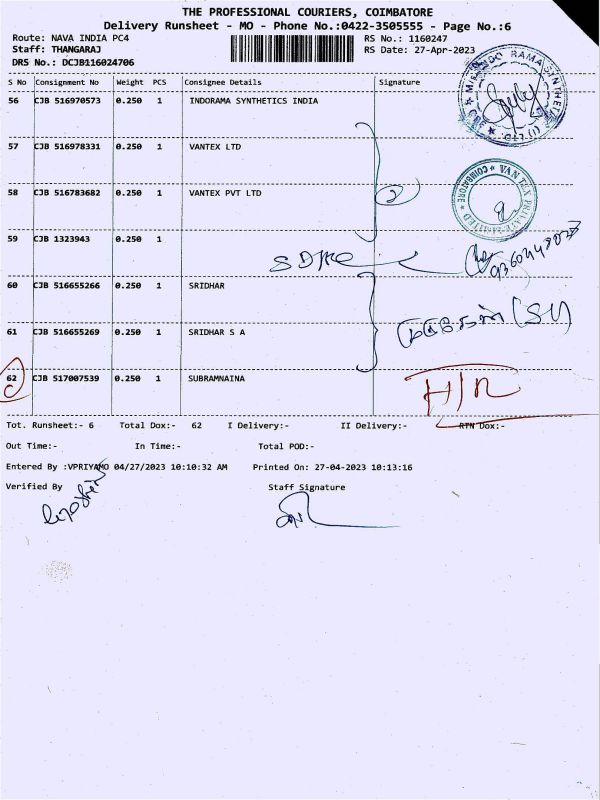 THE PROFESSIONAL COURIERS, COIMBATORE
Delivery Runsheet - MO - Phone No.:0422-3505555 - Page No.:6
Route: NAVA INDIA PC4 RS No.: 1160247
Staff: THANGARAJ RS Date: 27-Apr-2023
DRS No.: DCJB116024706
S No Consignment No Weight PCS Consignee Details Signature
56 CJB 516970573 0.250 1 INDORAMA SYNTHETICS INDIA
57 CJB 516978331 0.250 1 VANTEX LTD
58 CJB 516783682 0.250 1 VANTEX PVT LTD
2
VAN TEX PRIVATE LIMITED * COIMBATORE *
59 CJB 1323943 0.250 1
60 CJB 516655266 0.250 1 SRIDHAR
61 CJB 516655269 0.250 1 SRIDHAR S A
62 CJB 517007539 0.250 1 SUBRAMNAINA
Tot. Runsheet:- 6 Total Dox:- 62 I Delivery:- II Delivery:- RTN Dox:-
Out Time:- In Time:- Total POD:-
Entered By :VPRIYAMO 04/27/2023 10:10:32 AM Printed On: 27-04-2023 10:13:16
Verified By Staff Signature